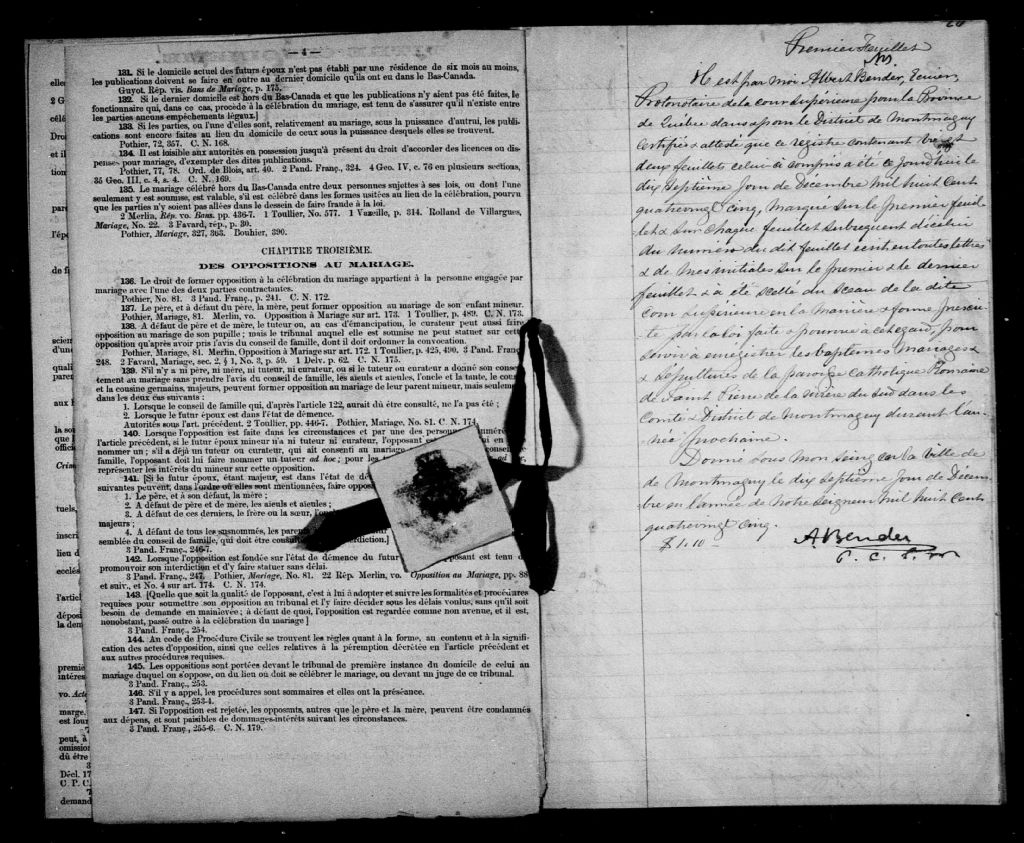 — 4 —
131. Si le domicile actuel des futurs époux n'est pas établi par une résidence de six mois au moins,
les publications doivent se faire en outre au dernier domicile qu'ils ont eu dans le Bas-Canada.
Guyot Rép. vis. Bans de Mariage, p. 175.
132. Si le dernier domicile est hors du Bas-Canada et que les publications n'y aient pas été faites, le
fonctionnaire qui, dans ce cas, procède à la célébration du mariage, est tenu de s'assurer qu'il n'existe entre
les parties aucuns empêchements légaux.]
133. Si les parties, ou l'une d'elles sont, relativement au mariage, sous la puissance d'autrui, les publi-
cations sont encore faites au lieu du domicile de ceux sous la puissance desquels elles se trouvent.
Pothier, 72, 357. C. N. 168.
134. Il est loisible aux autorités en possession jusqu'à présent du droit d'accorder des licences ou dis-
penses pour mariage, d'exempter des dites publications.
Pothier, 77, 78. Ord. de Blois, art. 40. 2 Pand. Franç., 324. 4 Geo. IV, c. 76 en plusieurs sections,
35 Geo. III, c. 4, s. 4. C. N. 169.
135. Le mariage célébré hors du Bas-Canada entre deux personnes sujettes à ses lois, ou dont l'une
seulement y est soumise, est valable, s'il est célébré dans les formes usitées au lieu de la célébration, pourvu
que les parties n'y soient pas allées dans le dessein de faire fraude à la loi.
2 Merlin, Rép. vo. Bans. pp. 436-7. 1 Toullier, No. 577. 1 Vazeille, p. 314. Rolland de Villargues,
Mariage, No. 22. 3 Favard, rép., p. 30.
Pothier, Mariage, 327, 363. Bouhier, 390.
CHAPITRE TROISIÈME.
DES OPPOSITIONS AU MARIAGE.
136. Le droit de former opposition à la célébration du mariage appartient à la personne engagée par
mariage avec l'une des deux parties contractantes.
Pothier, No. 81. 3 Pand. Franç., p. 241. C. N. 172.
137. Le père, et à défaut du père, la mère, peut former opposition au mariage de son enfant mineur.
Pothier, Mariage, 81. Merlin, vo. Opposition à Mariage sur art. 173. 1 Toullier, p. 489. C. N. 173.
138. A défaut de père et de mère, le tuteur ou, au cas d'émancipation, le curateur peut aussi faire
opposition au mariage de son pupille; mais le tribunal auquel elle est soumise ne peut statuer sur cette
opposition qu'après avoir pris l'avis du conseil de famille, dont il doit ordonner la convocation.
Pothier, Mariage, 81. Merlin, Opposition à Mariage sur art. 172. 1 Toullier, p. 425, 490. 3 Pand. Franç
248. 2 Favard, Mariage, sec. 2, § 1, No. 3, p. 59. 1 Delv. p. 62. C. N. 175.
139. S'il n'y a ni père, ni mère, ni tuteur, ni curateur, ou si le tuteur ou curateur a donné son conse
tement au mariage sans prendre l'avis du conseil de famille, les aïeuls et aïeules, l'oncle et la tante, le cous
et la cousine germains, majeurs, peuvent former opposition au mariage de leur parent mineur, mais seulem
dans les deux cas suivants:
1. Lorsque le conseil de famille qui, d'après l'article 122, aurait dû être consulté, ne l'a pas été;
2. Lorsque le futur époux est dans l'état de démence.
Autorités sous l'art. précédent. 2 Toullier, pp. 446-7. Pothier, Mariage, No. 81. C. N. 174
140. Lorsque l'opposition est faite dans les circonstances et par une des personnes
l'article précédent, si le futur époux mineur n'a ni tuteur ni curateur, l'opposant
nommer un; s'il a déjà un tuteur ou curateur, qui ait consenti au mariage
famille, l'opposant doit lui faire nommer un tuteur ad hoc; pour
représenter les intérêts du mineur sur cette opposition.
141. [Si le futur époux, étant majeur, est dans l'état de
suivantes peuvent, dans l'ordre où elles sont mentionnées, faire oppos
1. Le père, et à son défaut, la mère;
2. A défaut de père et de mère, les aïeuls et aïeules;
3. A défaut de ces derniers, le frère ou la sœur,
majeurs;
4. A défaut de tous les susnommés, les
semblée du conseil de famille, qui doit être rdiction.]
3 Pand. Franç., 246-7.
142. Lorsque l'opposition est fondée sur l'état de démence du futur posant est tenu
promouvoir son interdiction et d'y faire statuer sans délai.
3 Pand. Franç., 247. Pothier, Mariage, No. 81. 22 Rép. Merlin, vo. Opposition au Mariage, pp. 88
et suiv., et No. 4 sur art. 174. C. N. 174.
143. [Quelle que soit la qualité de l'opposant, c'est à lui à adopter et suivre les formalités et procédures
requises pour soumettre son opposition au tribunal et l'y faire décider sous les délais voulus, sans qu'il soit
besoin de demande en mainlevée; à défaut de quoi, l'opposition est regardée comme non avenue, et il est,
nonobstant, passé outre à la célébration du mariage]
3 Pand. Franç., 254.
144. Au code de Procédure Civile se trouvent les règles quant à la forme, au contenu et à la signifi-
cation des actes d'opposition, ainsi que celles relatives à la péremption décrétée en l'article précédent et
aux autres procédures requises.
145. Les oppositions sont portées devant le tribunal de première instance du domicile de celui au
mariage duquel on s'oppose, ou du lieu où doit se célébrer le mariage, ou devant un juge de ce tribunal.
3 Pand. Franç., 253.
146. S'il y a appel, les procédures sont sommaires et elles ont la préséance.
3 Pand. Franç., 253-4.
147. Si l'opposition est rejetée, les opposants, autres que le père et la mère, peuvent être condamnés
aux dépens, et sont paisibles de dommages-intérêts suivant les circonstances.
3 Pand. Franç., 255-6. C. N. 179.
Premier Feuillet
Il est par moi Albert Bender, Ecuier,
Protonotaire de la cour supérieure pour la Province
de Québec dans & pour le District de Montmagny
certifié & attesté que ce régistre contenant
deux feuillets celui ci compris a été ce jourd'hui le
dix septième jour de Décembre mil huit cent
quatrevingt cinq, marqué sur le premier feuil-
let & sur chaque feuillet subsequent d'icelui
du numéro du dit feuillet écrit en toutes lettres
& de mes initiales sur le premier & le dernier
feuillet & a été scellé du sceau de la dite
Cour supérieure en la manière & forme prescri-
te par la loi faite & pourvue à cet égard, pour
servir à enrégistrer les baptemes mariages &
& sépultures de la paroisse Catholique Romaine
de Saint Pierre de la rivière du Sud dans les
Comté & District de Montmagny durant l'an-
née prochaine.
Donné sous mon seing en la ville de
de Montmagny le dix septième jour de Décem-
bre en l'année de notre Seigneur mil huit cent
quatrevingt cinq.
$1.10
A. Bender
P. C. S. M